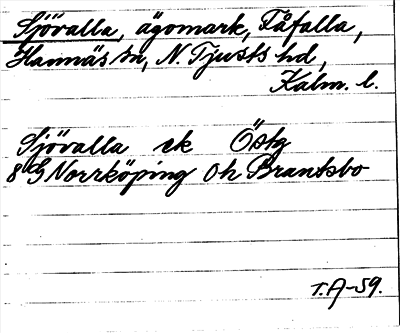 Sjövalla, ägomark, Fåfalla,
Hannäs sn, N. Tjusts hd,
Kalm. l.
Sjövalla ek Östg
8G Norrköping Öh Brantsbo
T.A-59.